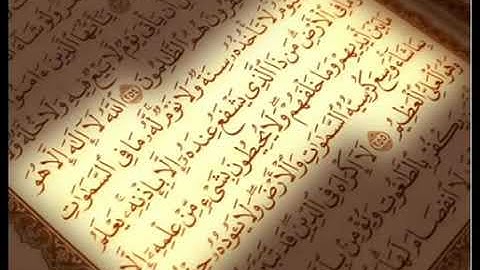 يَٰٓأَيُّهَا ٱلَّذِينَ ءَامَنُوٓا۟
أَن يَأْتِىَ يَوْمٌ لَّا بَيْعٌ فِيهِ وَلَا خُلَّةٌ
هُمُ ٱلظَّٰلِمُونَ ٢٥٤ ٱللَّهُ لَآ إِلَٰهَ إِلَّا هُوَ
تَأْخُذُهُۥ سِنَةٌ وَلَا نَوْمٌ لَّهُۥ مَا فِى ٱلسَّمَٰوَٰتِ
ٱلْأَرْضِ مَن ذَا ٱلَّذِى يَشْفَعُ عِندَهُۥٓ إِلَّا بِإِذْنِهِۦ يَعْلَمُ
مَا بَيْنَ أَيْدِيهِمْ وَمَا خَلْفَهُمْ وَلَا يُحِيطُونَ بِشَىْءٍ مِّنْ عِلْمِهِۦٓ إِلَّا
شَآءَ وَسِعَ كُرْسِيُّهُ ٱلسَّمَٰوَٰتِ وَٱلْأَرْضَ وَلَا يَـُٔودُهُۥ
وَهُوَ ٱلْعَلِىُّ ٱلْعَظِيمُ ٢٥٥ لَآ إِكْرَاهَ فِى ٱلدِّينِ قَد
يَكْفُرْ بِٱلطَّٰغُوتِ وَيُؤْمِنۢ
لَا ٱنفِصَامَ لَهَا